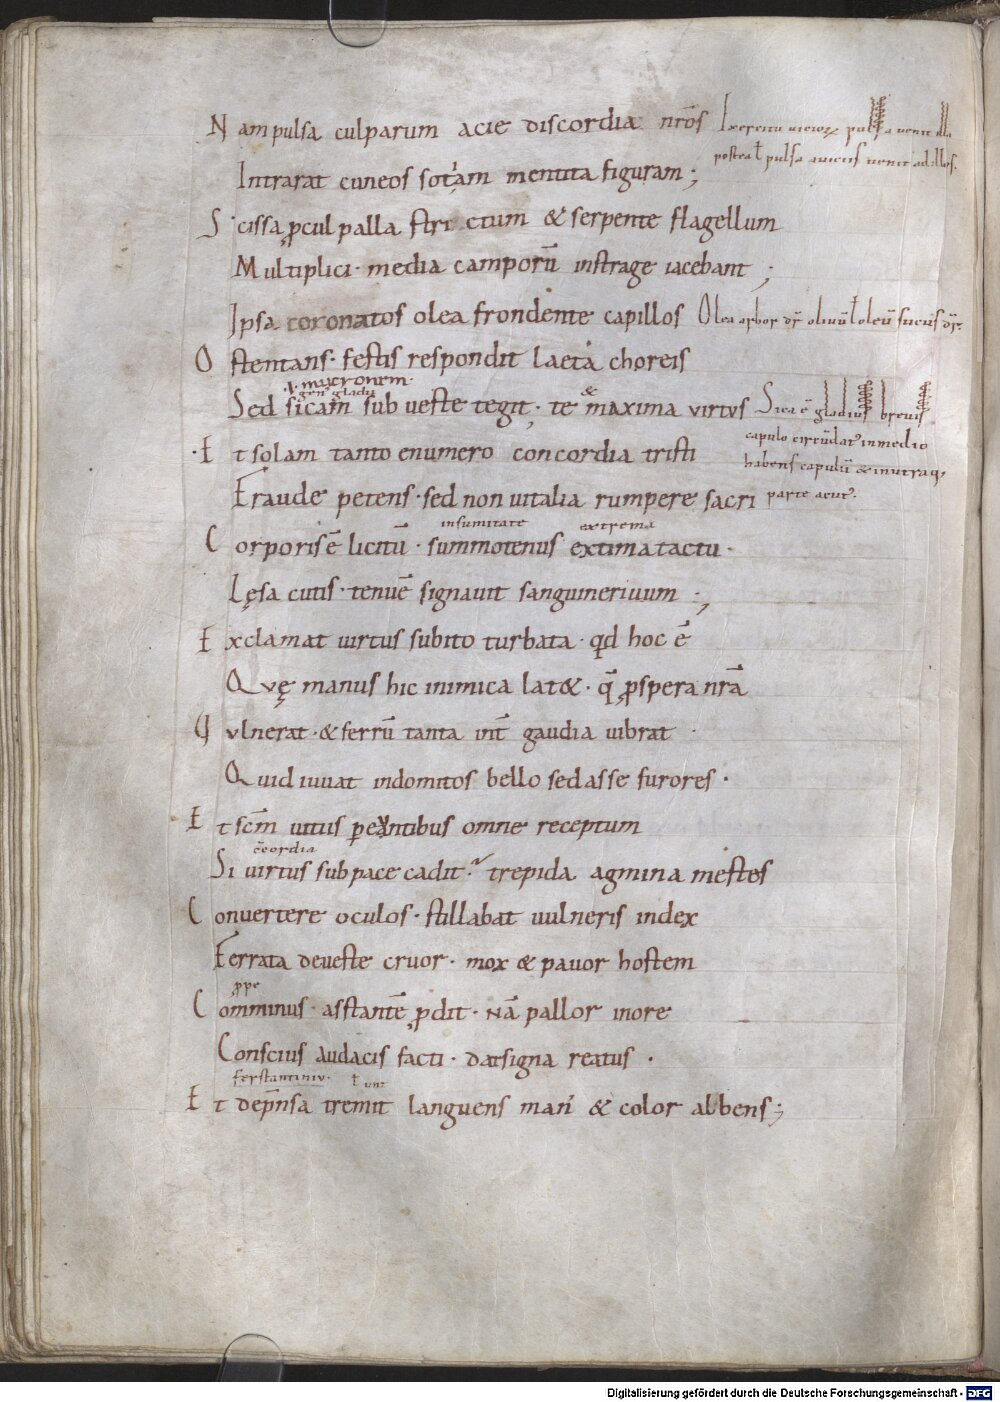 Nam pulsa culparum acie discordia nr̄os
Exercitu uicioꝝ pulsa uenit illa
postea ł pulsa auiciis uenit ad illos.
Intrarat cuneos sotiam mentita figuram;
Scissa ꝓcul palla strictum & serpente flagellum
Multiplici· media camporū in strage iacebant;
Ipsa coronatos olea frondente capillos
Olea arbor dr̄ oliuū ł oleū sucus dr̄.
Ostentans· festis respondit laeta choreis
.i. mucronem.
gen' gladii
Sed sicam sub ueste tegit· te & maxima virtus
Sica ē gladius breuis
capulo circūdat' in medio
habens capulū & in utraq;
parte acut'.
Et solam tanto e numero concordia tristi
Fraude petens· sed non uitalia rumpere sacri
in sumitate extrema
Corporis ē licitū· summotenus extima tactu·
Lęsa cutis· tenuē signauit sanguine riuum;
Exclamat uirtus subito turbata· qd hoc ē
Quę manus hic inimica lat&· q̄ ꝓspera nr̄a
Vulnerat· & ferrū tanta int̄ gaudia uibrat·
Quid iuuat indomitos bello sedasse furores·
Et scm̄ uitiis pereuntibus omne receptum
c̄cordia
Si uirtus sub pace cadit· trepida agmina mestos
Conuertere oculos· stillabat uulneris index
Ferrata de ueste cruor· mox & pauor hostem
ꝓpe
Comminus· asstantē ꝓdit· nā pallor in ore
Conscius audacis facti· dat signa reatus·
ł unt
Et dep̄nsa tremit languens man' & color albens;
Digitalisierung gefördert durch die Deutsche Forschungsgemeinschaft - DFG